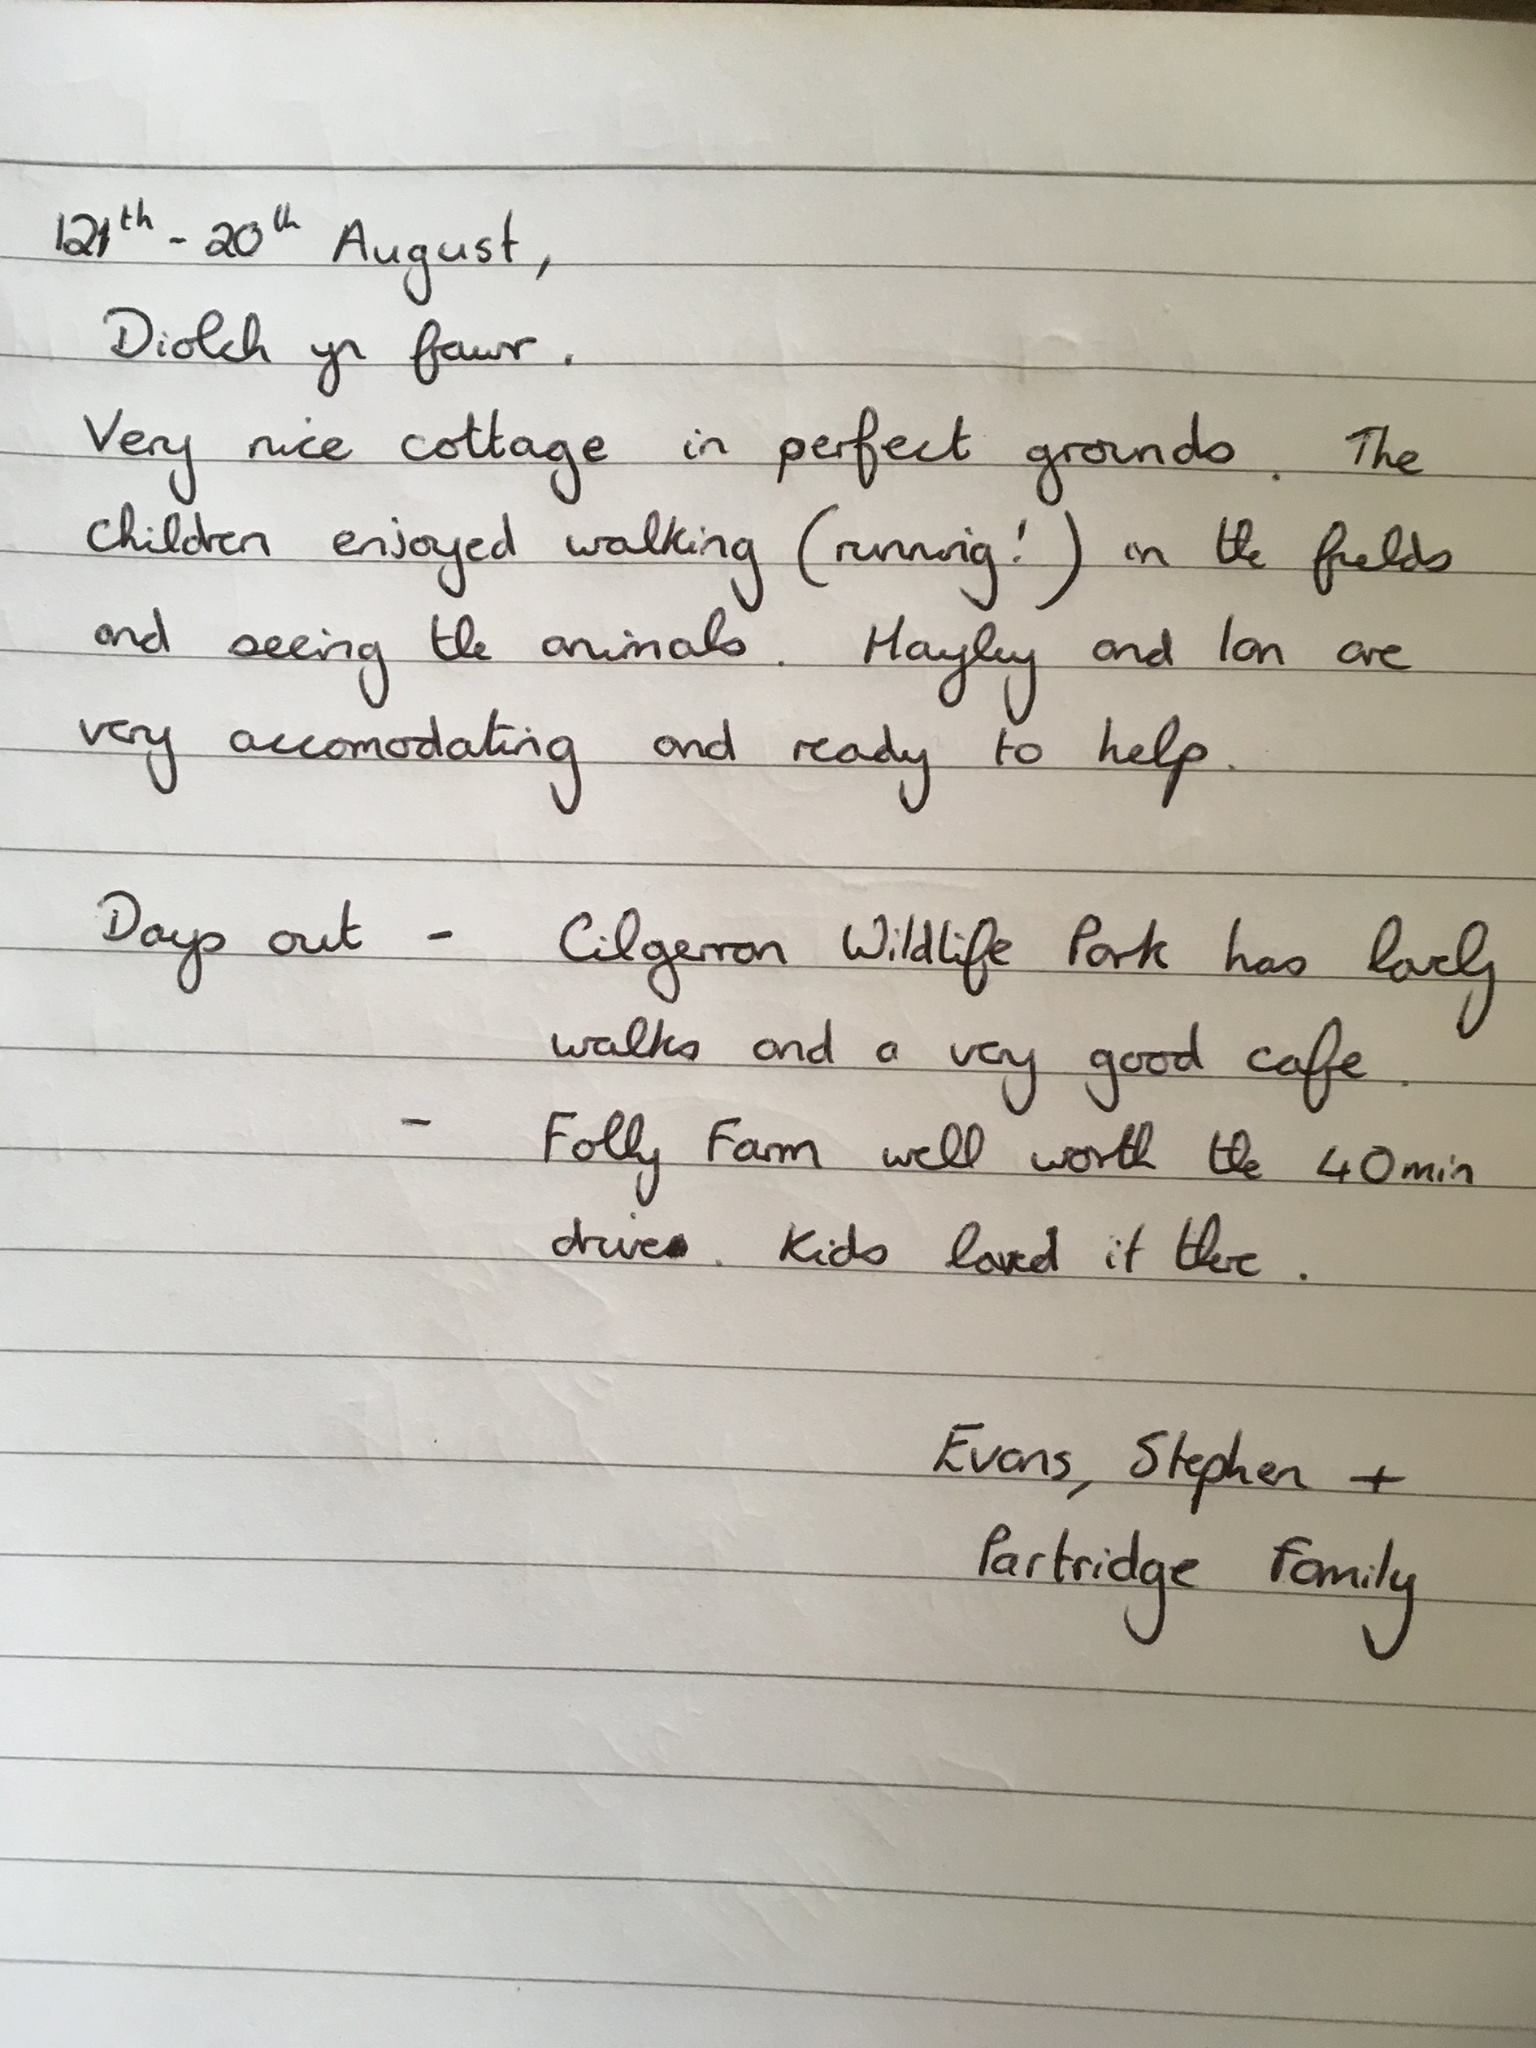 20th August,
Diolch yn fawr.
Very nice cottage in perfect grounds. The
children enjoyed walking (running!) in the fields
and seeing the animals. Hayley and Ian are
very accomodating and ready to help.
Days out - Cilgerran Wildlife Park has lovely
walks and a very good cafe.
- Folly Farm well worth the 40min
drive. Kids loved it there.
Evans, Stephen +
Partridge Family